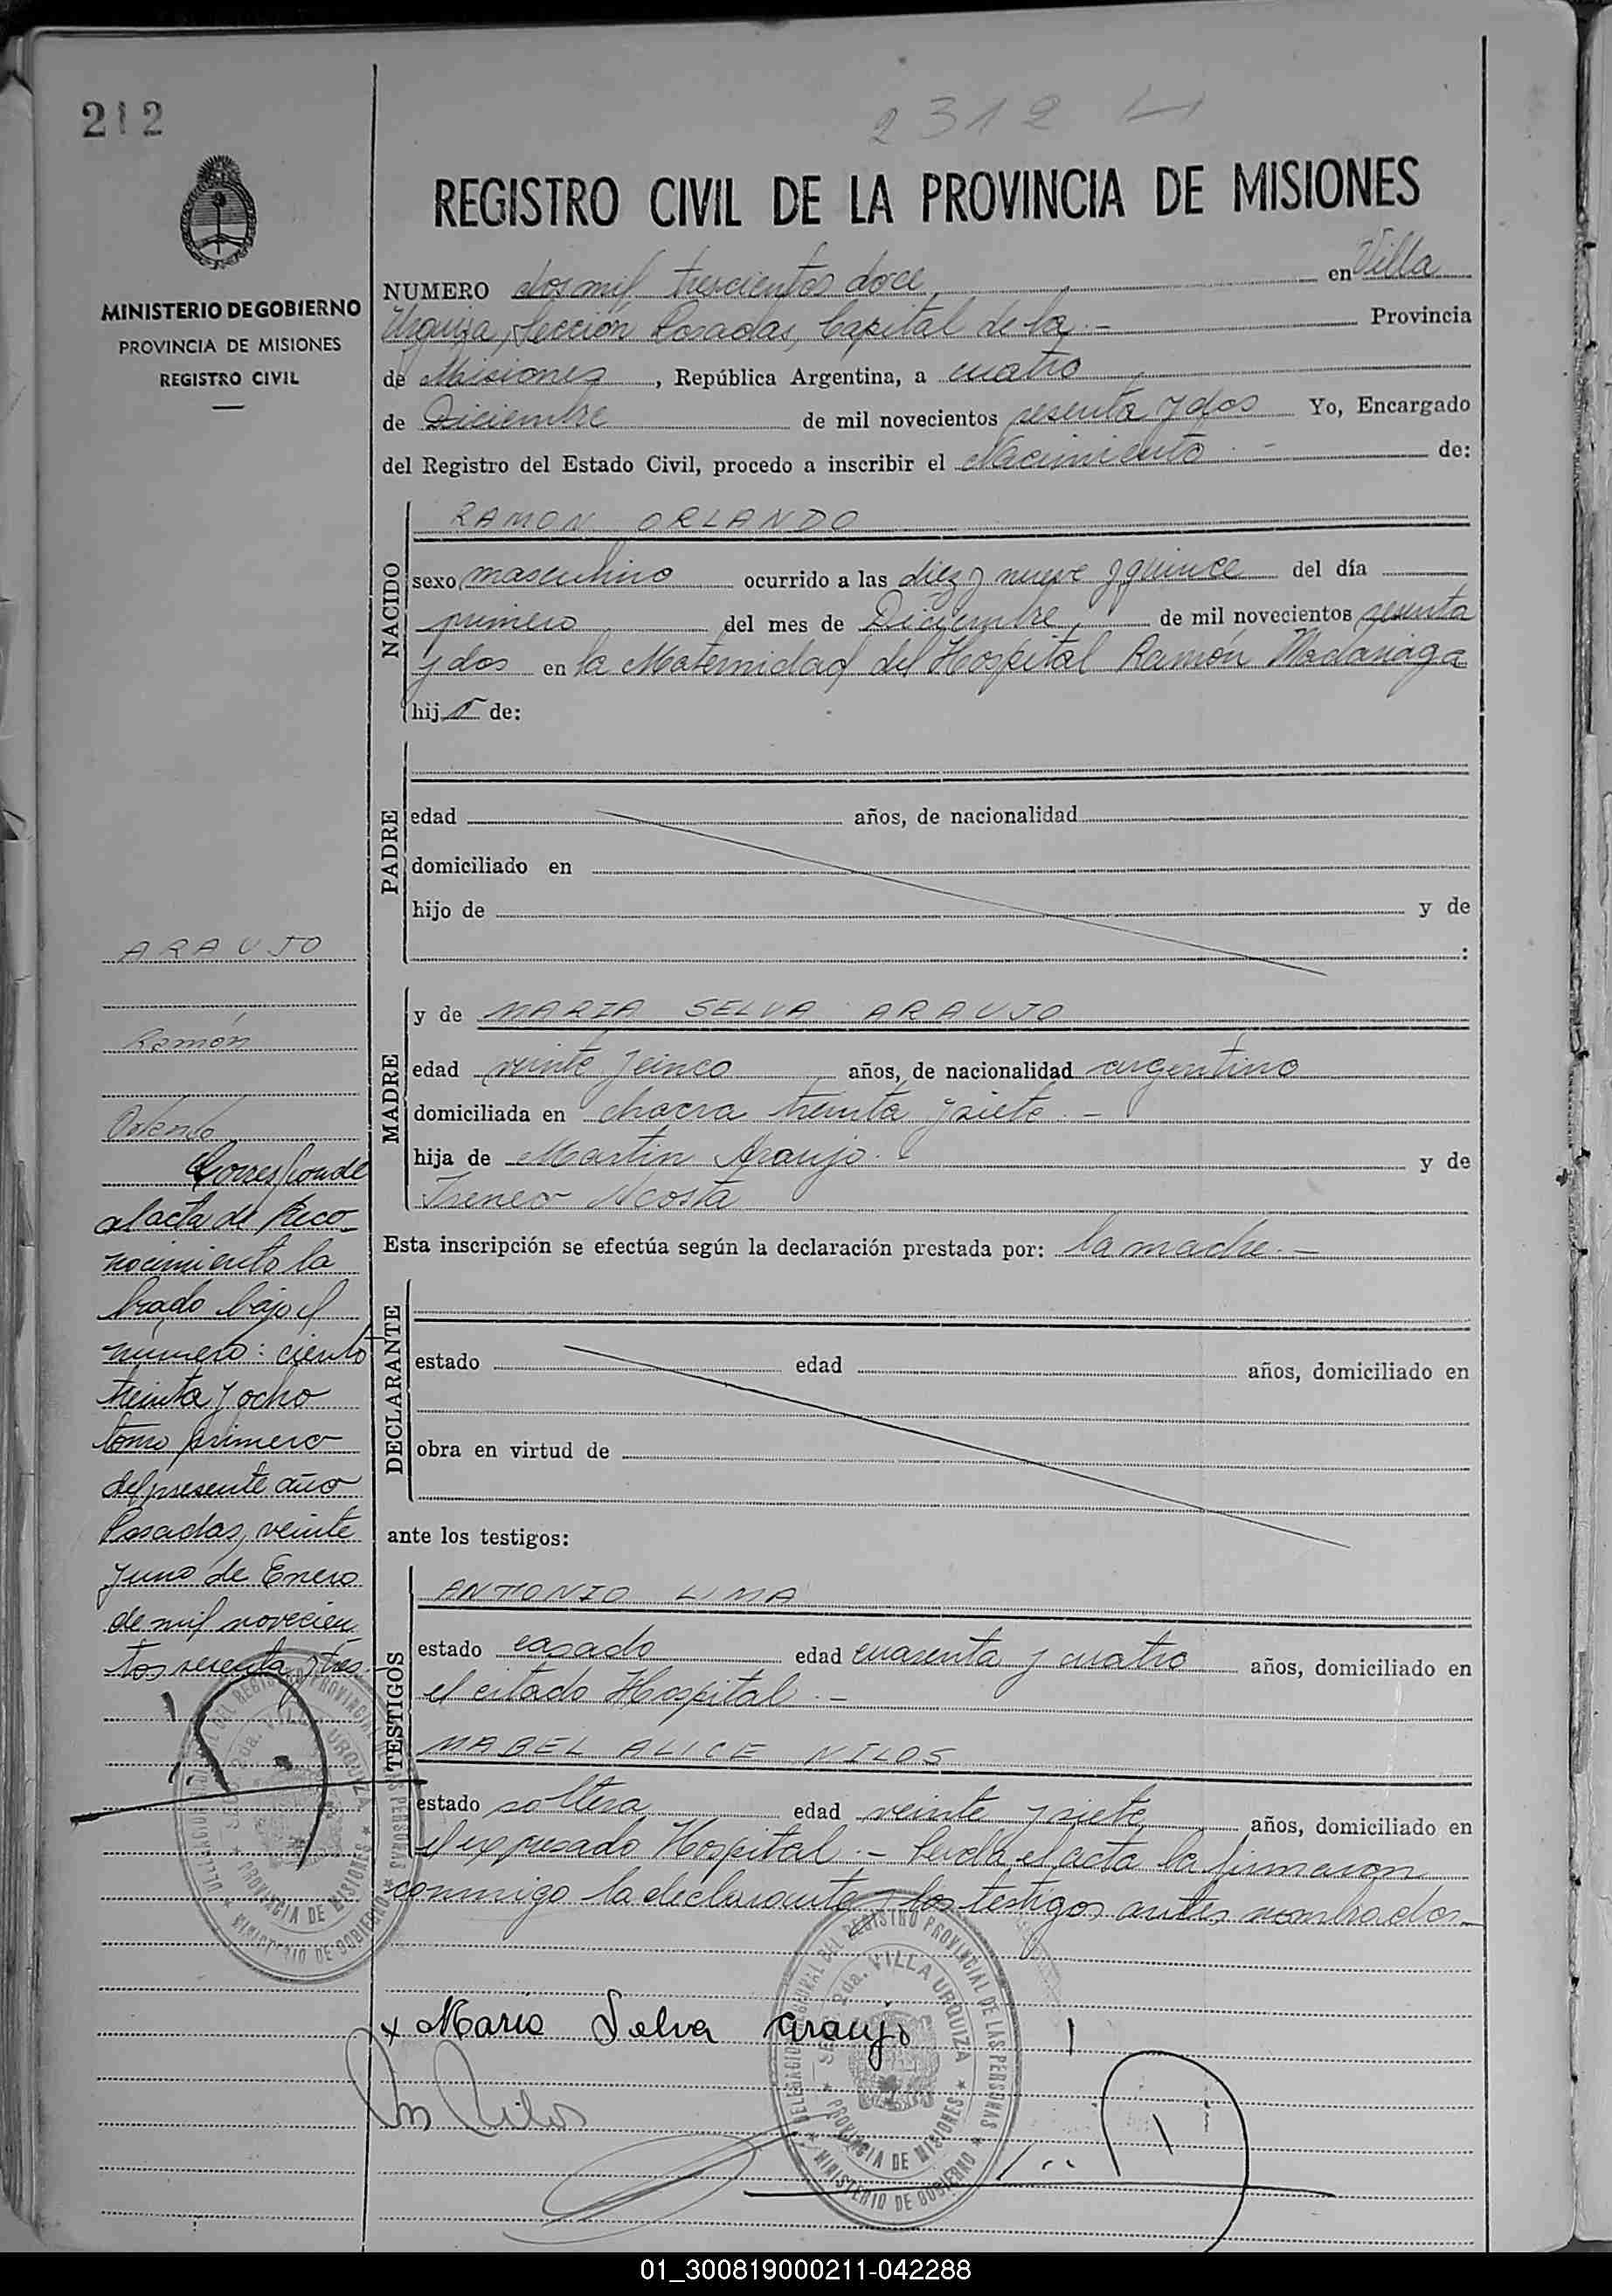 212
2312
REGISTRO CIVIL DE LA PROVINCIA DE MISIONES
MINISTERIO DE GOBIERNO
PROVINCIA DE MISIONES
REGISTRO CIVIL
NUMERO dos mil trescientos doce en Villa
Urquiza, Sección Posadas, Capital de la.- Provincia
de Misiones, República Argentina, a cuatro
de Diciembre de mil novecientos sesenta y dos Yo, Encargado
del Registro del Estado Civil, procedo a inscribir el Nacimiento.- de:
NACIDO
RAMON ORLANDO
sexo masculino ocurrido a las diez y nueve y quince del día
primero del mes de Diciembre, de mil novecientos sesenta
y dos en la Maternidad del Hospital Ramón Madariaga
hijo de:
PADRE
edad años, de nacionalidad
domiciliado en
hijo de y de
:
MADRE
y de MARIA SELVA ARAUJO
edad veinte y cinco años, de nacionalidad argentina
domiciliada en chacra treinta y siete.-
hija de Martin Araujo. y de
Irenea Acosta
Esta inscripción se efectúa según la declaración prestada por: la madre.-
DECLARANTE
estado edad años, domiciliado en
obra en virtud de
ante los testigos:
TESTIGOS
ANTONIO LIMA
estado casado edad cuarenta y cuatro años, domiciliado en
el citado Hospital.-
MABEL ALICE NILOS
estado soltera edad veinte y siete años, domiciliado en
el expresado Hospital.- Leída el acta la firmaron
conmigo la declarante y los testigos antes nombrados.-
x Maria Selva Araujo
Nilos
ARAUJO
Ramón
Orlando
Corresponde
al acta de Reco-
nocimiento la
brado bajo el
número: ciento
treinta y ocho
tomo primero
del presente año
Posadas, veinte
y uno de Enero
de mil novecien
tos sesenta y tres.
DELEGACION SECCIONAL DEL REGISTRO PROVINCIAL DE LAS PERSONAS
SEC. 2da. VILLA URQUIZA
PROVINCIA DE MISIONES
MINISTERIO DE GOBIERNO
DELEGACION SECCIONAL DEL REGISTRO PROVINCIAL DE LAS PERSONAS
SEC. 2da. VILLA URQUIZA
PROVINCIA DE MISIONES
MINISTERIO DE GOBIERNO
01_300819000211-042288